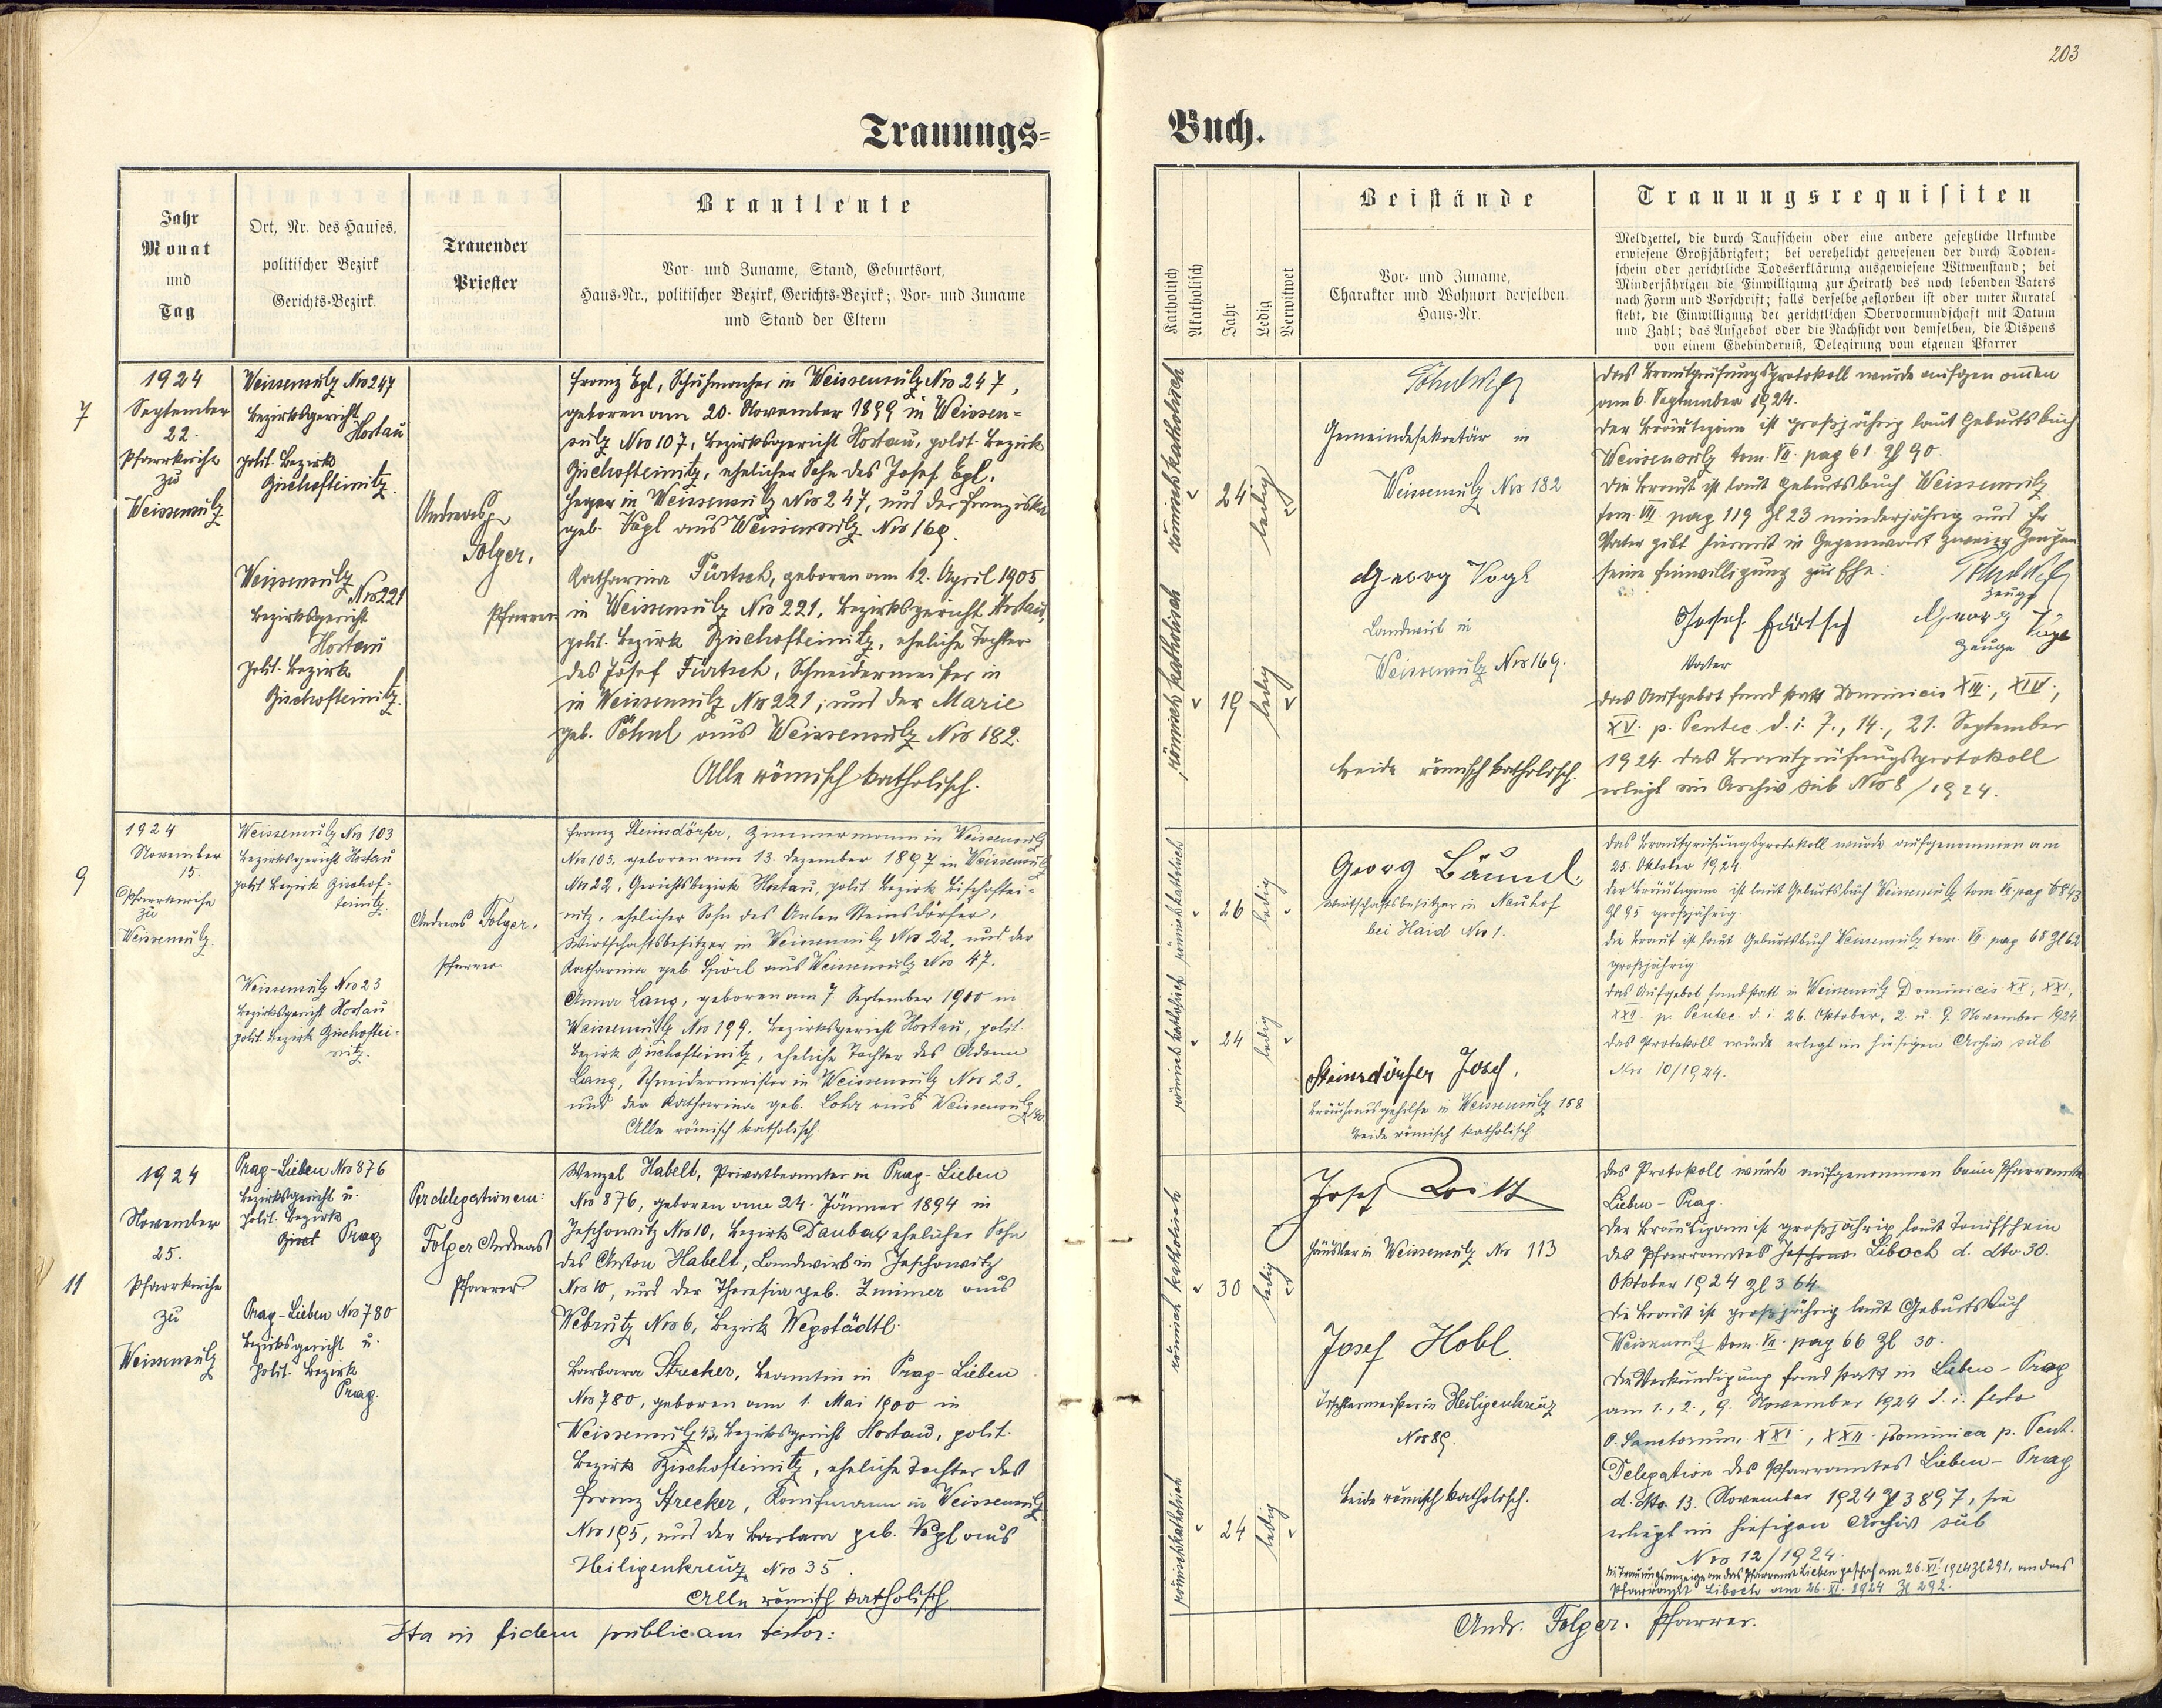 203
Trauungs=
Buch.
Jahr
Monat
und
Tag
Ort, Nr. des Hauses,
politischer Bezirk
Gerichts-Bezirk.
Trauender
Priester
Brautleute
Vor- und Zuname, Stand, Geburtsort,
Haus-Nr., politischer Bezirk, Gerichts-Bezirk; Vor- und Zuname
und Stand der Eltern
Katholisch
Akatholisch
Jahr
Ledig
Verwitwet
Beistände
Vor- und Zuname,
Charakter und Wohnort derselben.
Haus-Nr.
Trauungsrequisiten
Meldzettel, die durch Taufschein oder eine andere gesetzliche Urkunde
erwiesene Großjährigkeit; bei verehelicht gewesenen der durch Todten-
schein oder gerichtliche Todeserklärung ausgewiesene Witwenstand; bei
Minderjährigen die Einwilligung zur Heirath des noch lebenden Vaters
nach Form und Vorschrift; falls derselbe gestorben ist oder unter Kuratel
steht, die Einwilligung der gerichtlichen Obervormundschaft mit Datum
und Zahl; das Aufgebot oder die Nachsicht von demselben, die Dispens
von einem Ehehinderniß, Delegirung vom eigenen Pfarrer
7
1924
September
22.
Pfarrkirche
zu
Weissensulz
Weissensulz Nro 247
Bezirksgericht
Hostau
polit. Bezirk
Bischofteinitz.
Weissensulz
Nro 221
Bezirksgericht
Hostau
polit. Bezirk
Bischofteinitz.
Andreas
Folger,
Pfarrer
Franz Egl, Schuhmacher in Weissensulz Nro 247,
geboren am 20. November 1899 in Weissen-
sulz Nro 107, Bezirksgericht Hostau, polit. Bezirk
Bischofteinitz, ehelicher Sohn des Josef Egl,
Heger in Weissensulz Nro 247, und der Franziska
geb. Vogl aus Weissensulz Nro 169.
Katharina Fürtsch, geboren am 12. April 1905
in Weissensulz Nro 221, Bezirksgericht Hostau,
polit. Bezirk Bischofteinitz, eheliche Tochter
des Josef Fürtsch, Schneidermeister in
in Weissensulz Nro 221; und der Marie
geb. Pöhnl aus Weissensulz Nro 182.
Alle römisch katholisch.
römisch katholisch
24
ledig
römisch katholisch
19
ledig
Gemeindesekretär in
Weissensulz Nro 182
Georg Vogl
Landwirt in
Weissensulz Nro 169.
beide römisch katholisch.
Das Brautprüfungsprotokoll wurde aufgenommen
am 6. September 1924.
Der Bräutigam ist großjährig laut Geburtsbuch
Weissensulz tom. VI. pag 61. Zl 90.
Die Braut ist laut Geburtsbuch Weissensulz
tom. VII. pag 119 Zl 23 minderjährig und ihr
Vater gibt hiermit in Gegenwart zweier Zeugen
seine Einwilligung zur Ehe:
Zeuge
Josef Fürtsch
Georg Vogl
Vater
Zeuge
Das Aufgebot fand statt Dominicis XIII., XIV.,
XV. p. Pentec. d. i. 7., 14., 21. September
1924. Das Brautprüfungsprotokoll
erliegt im Archiv sub Nro 8/1924.
9
1924
November
15.
Pfarrkirche
zu
Weissensulz.
Weissensulz Nro 103
Bezirksgericht Hostau
polit. Bezirk Bischof-
teinitz.
Weissensulz Nro 23
Bezirksgericht Hostau
polit. Bezirk Bischoftei-
nitz.
Andreas Folger.
Pfarrer
Franz Steinsdörfer, Zimmermann in Weissensulz
Nro 103, geboren am 13. Dezember 1897 in Weissensulz
Nro 22, Gerichtsbezirk Hostau, polit. Bezirk Bischoftei-
nitz, ehelicher Sohn des Anton Steinsdörfer,
Wirtschaftsbesitzer in Weissensulz Nro 22, und der
Katharina geb. Spörl aus Weissensulz Nro 47.
Anna Lang, geboren am 7. September 1900 in
Weissensulz Nro 199, Bezirksgericht Hostau, polit.
Bezirk Bischofteinitz, eheliche Tochter des Adam
Lang, Schneidermeister in Weissensulz Nro 23,
und der Katharina geb. Lohr aus Weissensulz
Alle römisch katholisch.
römisch katholisch
26
ledig
römisch katholisch
24
ledig
Georg Bäuml.
Wirtschaftsbesitzer in Neuhof
bei Haid Nro 1.
Steinsdörfer Josef,
Bräuhausgehilfe in Weissensulz 158
beide römisch katholisch.
Das Brautprüfungsprotokoll wurde aufgenommen am
25. Oktober 1924.
Der Bräutigam ist laut Geburtsbuch Weissensulz tom. VI pag
Zl 95 großjährig.
Die Braut ist laut Geburtsbuch Weissensulz tom. VI pag 68 Zl 62
großjährig.
Das Aufgebot fand statt in Weissensulz Dominicis XX., XXI.,
XXII. p. Pentec. d. i. 26. Oktober, 2. u. 9. November 1924.
Das Protokoll wurde erlegt im hiesigen Archiv sub
Nro 10/1924.
11
1924
November
25.
Pfarrkirche
zu
Weissensulz
Prag-Lieben Nro 876
Bezirksgericht u.
polit. Bezirk
Prag
Prag-Lieben Nro 780
Bezirksgericht u.
polit. Bezirk
Prag.
Per delegationem:
Folger Andreas
Pfarrer
Wenzel Habelt, Privatbeamter in Prag-Lieben
Nro 876, geboren am 24. Jänner 1894 in
Jeschowitz Nro 10, Bezirk Dauba, ehelicher Sohn
des Anton Habelt, Landwirt in Jeschowitz
Nro 10, und der Theresia geb. Zimmer aus
Webrutz Nro 6, Bezirk Wegstädtl.
Barbara Strecker, Beamtin in Prag-Lieben
Nro 780, geboren am 1. Mai 1900 in
Weissensulz 43, Bezirksgericht Hostau, polit.
Bezirk Bischofteinitz, eheliche Tochter des
Franz Strecker, Kaufmann in Weissensulz
Nro 195, und der Barbara geb. Vogl aus
Heiligenkreuz Nro 35.
Alle römisch katholisch.
römisch katholisch
30
ledig
römisch katholisch
24
ledig
Josef
Häusler in Weissensulz Nro 113
Josef Hobl.
Tischlermeister in Heiligenkreuz
Nro 89.
beide römisch katholisch.
Das Protokoll wurde aufgenommen beim Pfarramte
Lieben-Prag.
Der Bräutigam ist großjährig laut Taufschein
des Pfarramtes Liboch d. dto 30.
Oktober 1924 Zl 364.
Die Braut ist großjährig laut Geburtsbuch
Weissensulz tom. VI. pag 66 Zl 30.
Die Verkündigung fand statt in Lieben-Prag
am 1., 2., 9. November 1924 d. i. festo
O. Sanctorum, XXI., XXII. Dominica p. Pent.
Delegation des Pfarramtes Lieben-Prag
d. dto. 13. November 1924 Zl 3897, sie
erliegt im hiesigen Archiv sub
Nro 12/1924.
Die Trauungsanzeige an das Pfarramt Lieben geschah am 26. XI. 1924 Zl 291, an das
Pfarramt Liboch am 26. XI. 1924 Zl 292.
Ita in fidem publicam testor:
Andr. Folger. Pfarrer.